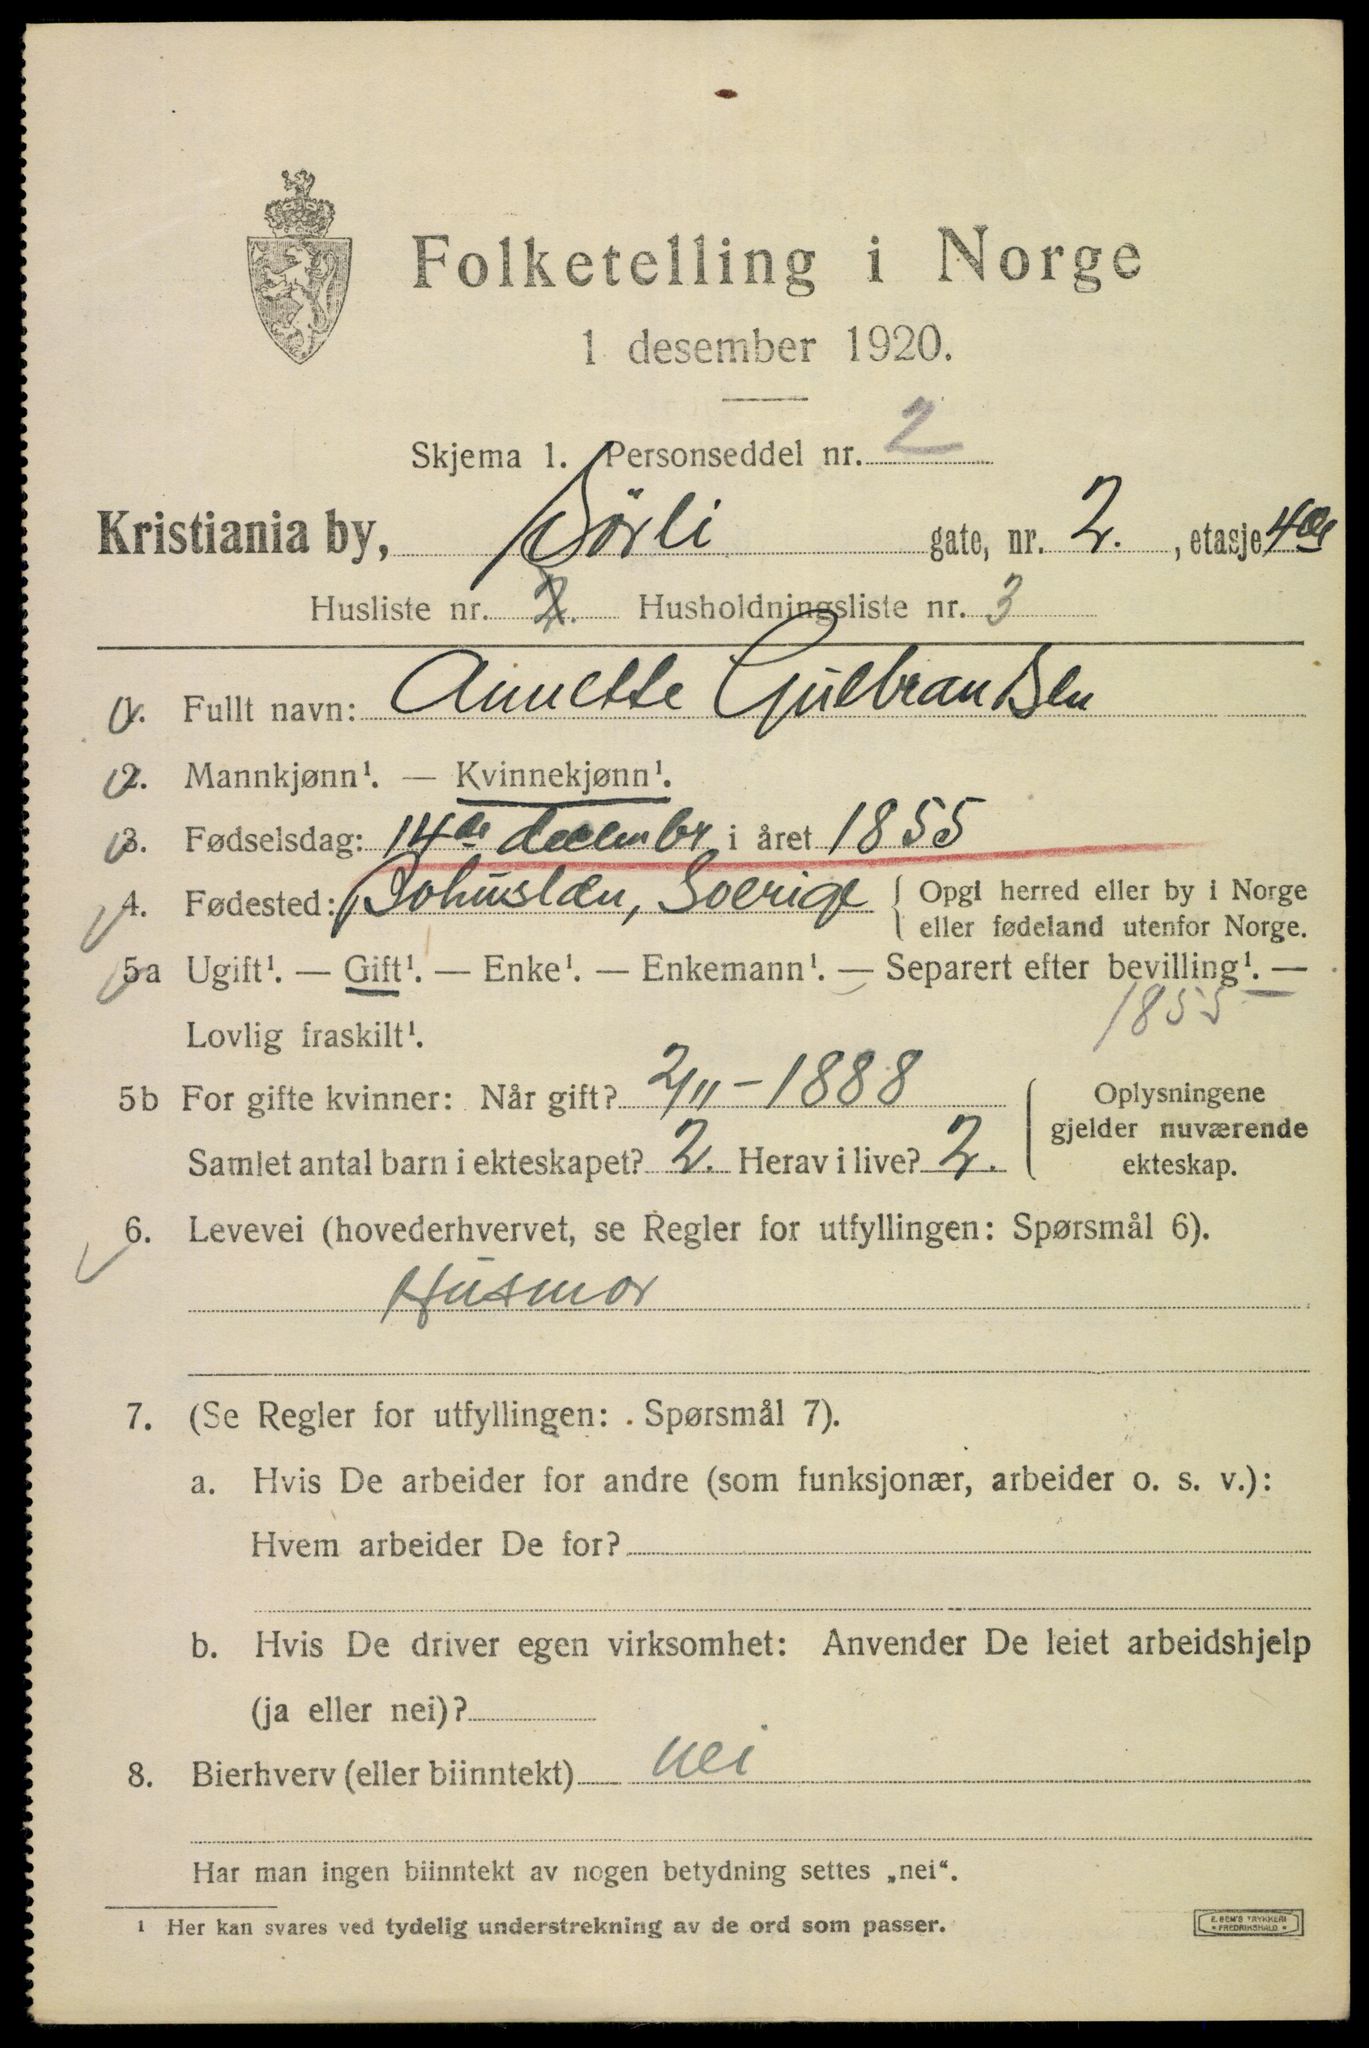 Folketelling i Norge
1 desember 1920.
Skjema 1. Personseddel nr. 2
Kristiania by, Sörli gate, nr. 2. , etasje 4de
Husliste nr. 2. Husholdningsliste nr. 3
1. Fullt navn: Annette Gulbrandsen
2. Mannkjønn¹. — Kvinnekjønn¹.
3. Fødselsdag: 14de decembr i året 1855
4. Fødested: Bohuslæn, Sverige { Opgi herred eller by i Norge
eller fødeland utenfor Norge.
5a Ugift¹. — Gift¹. — Enke¹. — Enkemann¹. — Separert efter bevilling¹. —
1855
Lovlig fraskilt¹.
5b For gifte kvinner: Når gift? 2/11 - 1888
Samlet antal barn i ekteskapet? 2. Herav i live? 2.
Oplysningene
gjelder nuværende
ekteskap.
6. Levevei (hovederhvervet, se Regler for utfyllingen: Spørsmål 6).
Husmor
7. (Se Regler for utfyllingen: Spørsmål 7).
a. Hvis De arbeider for andre (som funksjonær, arbeider o. s. v.):
Hvem arbeider De for?
b. Hvis De driver egen virksomhet: Anvender De leiet arbeidshjelp
(ja eller nei)?
8. Bierhverv (eller biinntekt) nei
Har man ingen biinntekt av nogen betydning settes „nei“.
¹ Her kan svares ved tydelig understrekning av de ord som passer.
E. SEM'S TRYKKERI
* FREDRIKSHALD *